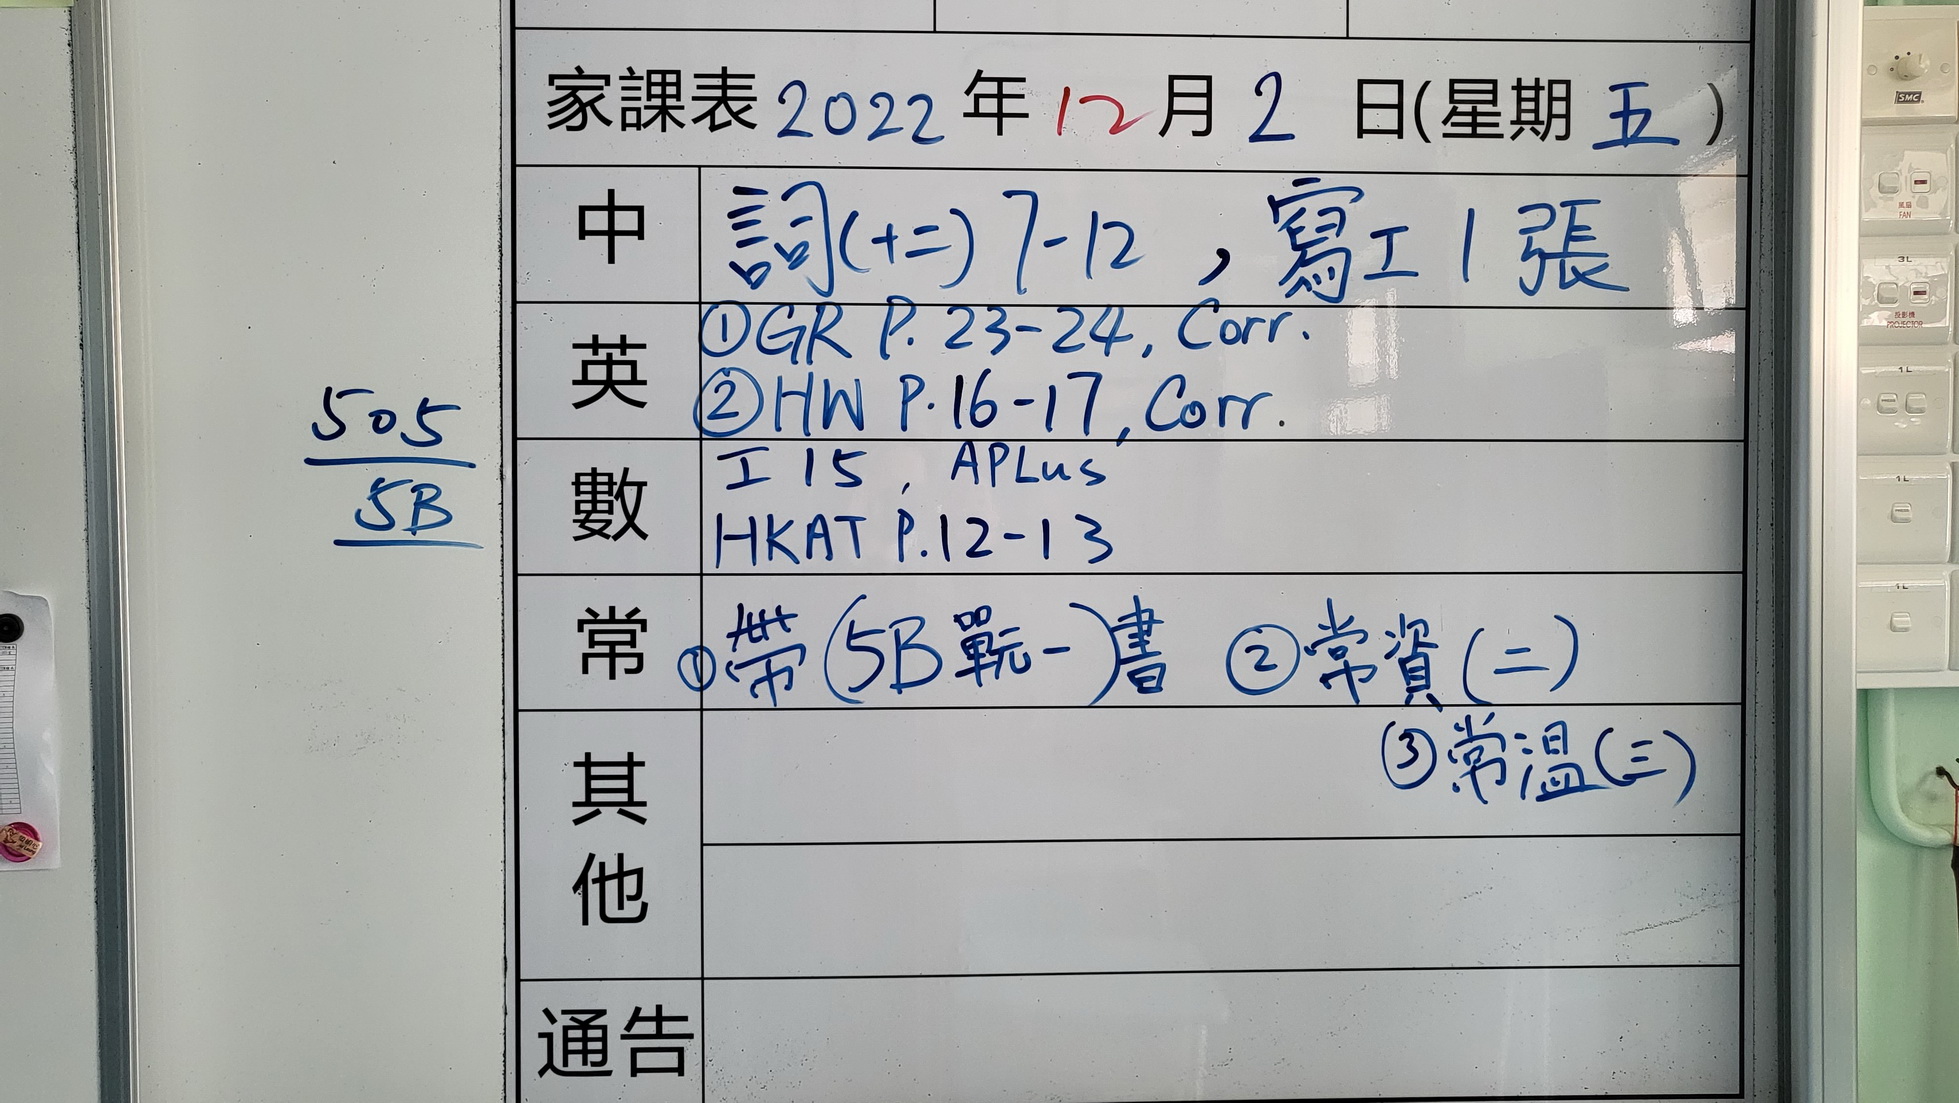 家課表 2022 年 12 月 2 日(星期 五 )
中 詞(十二) 7-12 , 寫工 1 張
英 ①GR P. 23-24, Corr.
②HW P.16-17, Corr.
數 工 15 , APLus
HKAT P.12-13
常 ①帶(5B單元一)書 ②常資(二)
③常溫(三)
其他
通告
505
5B
SMC
風扇
FAN
3L
投影機
PROJECTOR
1L
1L
1L